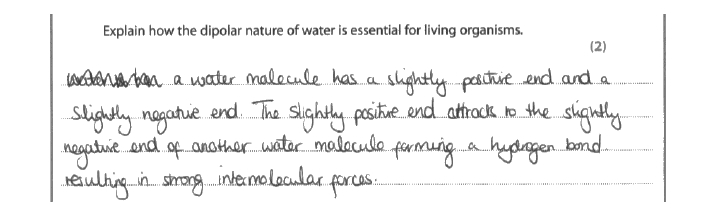 Explain how the dipolar nature of water is essential for living organisms.
(2)
a water molecule has a slightly positive end and a
slightly negative end. The slightly positive end attracts to the slightly
negative end of another water molecule forming a hydrogen bond
resulting in strong intermolecular forces.